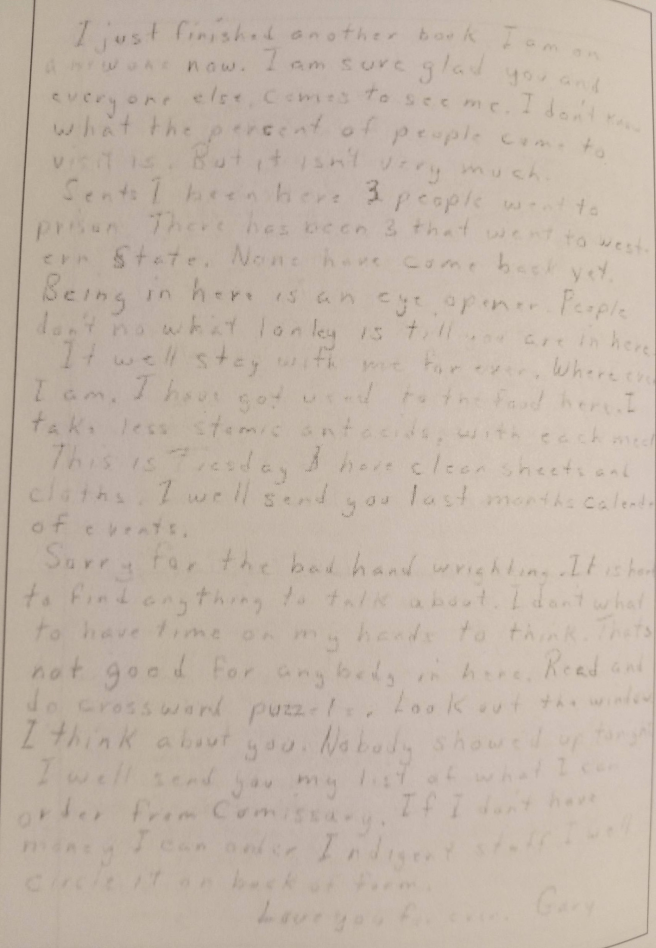 I just finished another book I am on
a new one now. I am sure glad you and
everyone else, comes to see me. I don't know
what the percent of people come to
visit is. But it isn't very much.
Sents I been here 3 people went to
prison There has been 3 that went to west-
ern State. None have come back yet.
Being in here is an eye opener. People
don't no what lonley is till you are in here
It well stay with me for ever. Where ever
I am. I have got used to the food here. I
take less stomic antacids, with each meal
This is Tuesday I have clean sheets and
cloths. I well send you last months calende
of events.
Sorry for the bad hand wrighting. It is har
to find anything to talk about. I dont what
to have time on my hands to think. Thats
not good for anybody in here. Read and
do crossword puzzels. Look out the window
I think about you. Nobody showed up tonight
I well send you my list of what I can
order from Comissary. If I dont have
money I can order Indigent stuff I well
circle it on back of form.
Love you for ever. Gary